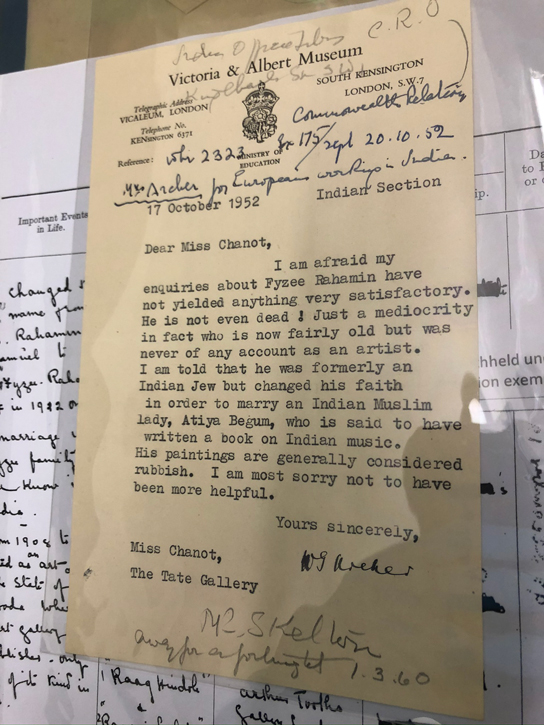 India Office Library
C.R.O
Victoria & Albert Museum
SOUTH KENSINGTON
LONDON, S.W.7
Telegraphic Address
VICALEUM, LONDON
Telephone No.
KENSINGTON 6371
Commonwealth Relations
Reference:
2323
MINISTRY OF
EDUCATION
175/
20.10.52
Mrs Archer for Europeans working in India.
Indian Section
17 October 1952
Dear Miss Chanot,
I am afraid my
enquiries about Fyzee Rahamin have
not yielded anything very satisfactory.
He is not even dead ! Just a mediocrity
in fact who is now fairly old but was
never of any account as an artist.
I am told that he was formerly an
Indian Jew but changed his faith
in order to marry an Indian Muslim
lady, Atiya Begum, who is said to have
written a book on Indian music.
His paintings are generally considered
rubbish. I am most sorry not to have
been more helpful.
Yours sincerely,
WG Archer
Miss Chanot,
The Tate Gallery
Mr Skelton
away for a fortnight 1.3.60
Important Events
in Life.
changed
name from
Rahamin
to
in 1922
marriage
family
know
from 1908 to
as art
State of
art gallery
only
of its kind in
"Raag Hindole"
Arthur Tooths
Da
to E
or
ip.
hheld und
ion exem